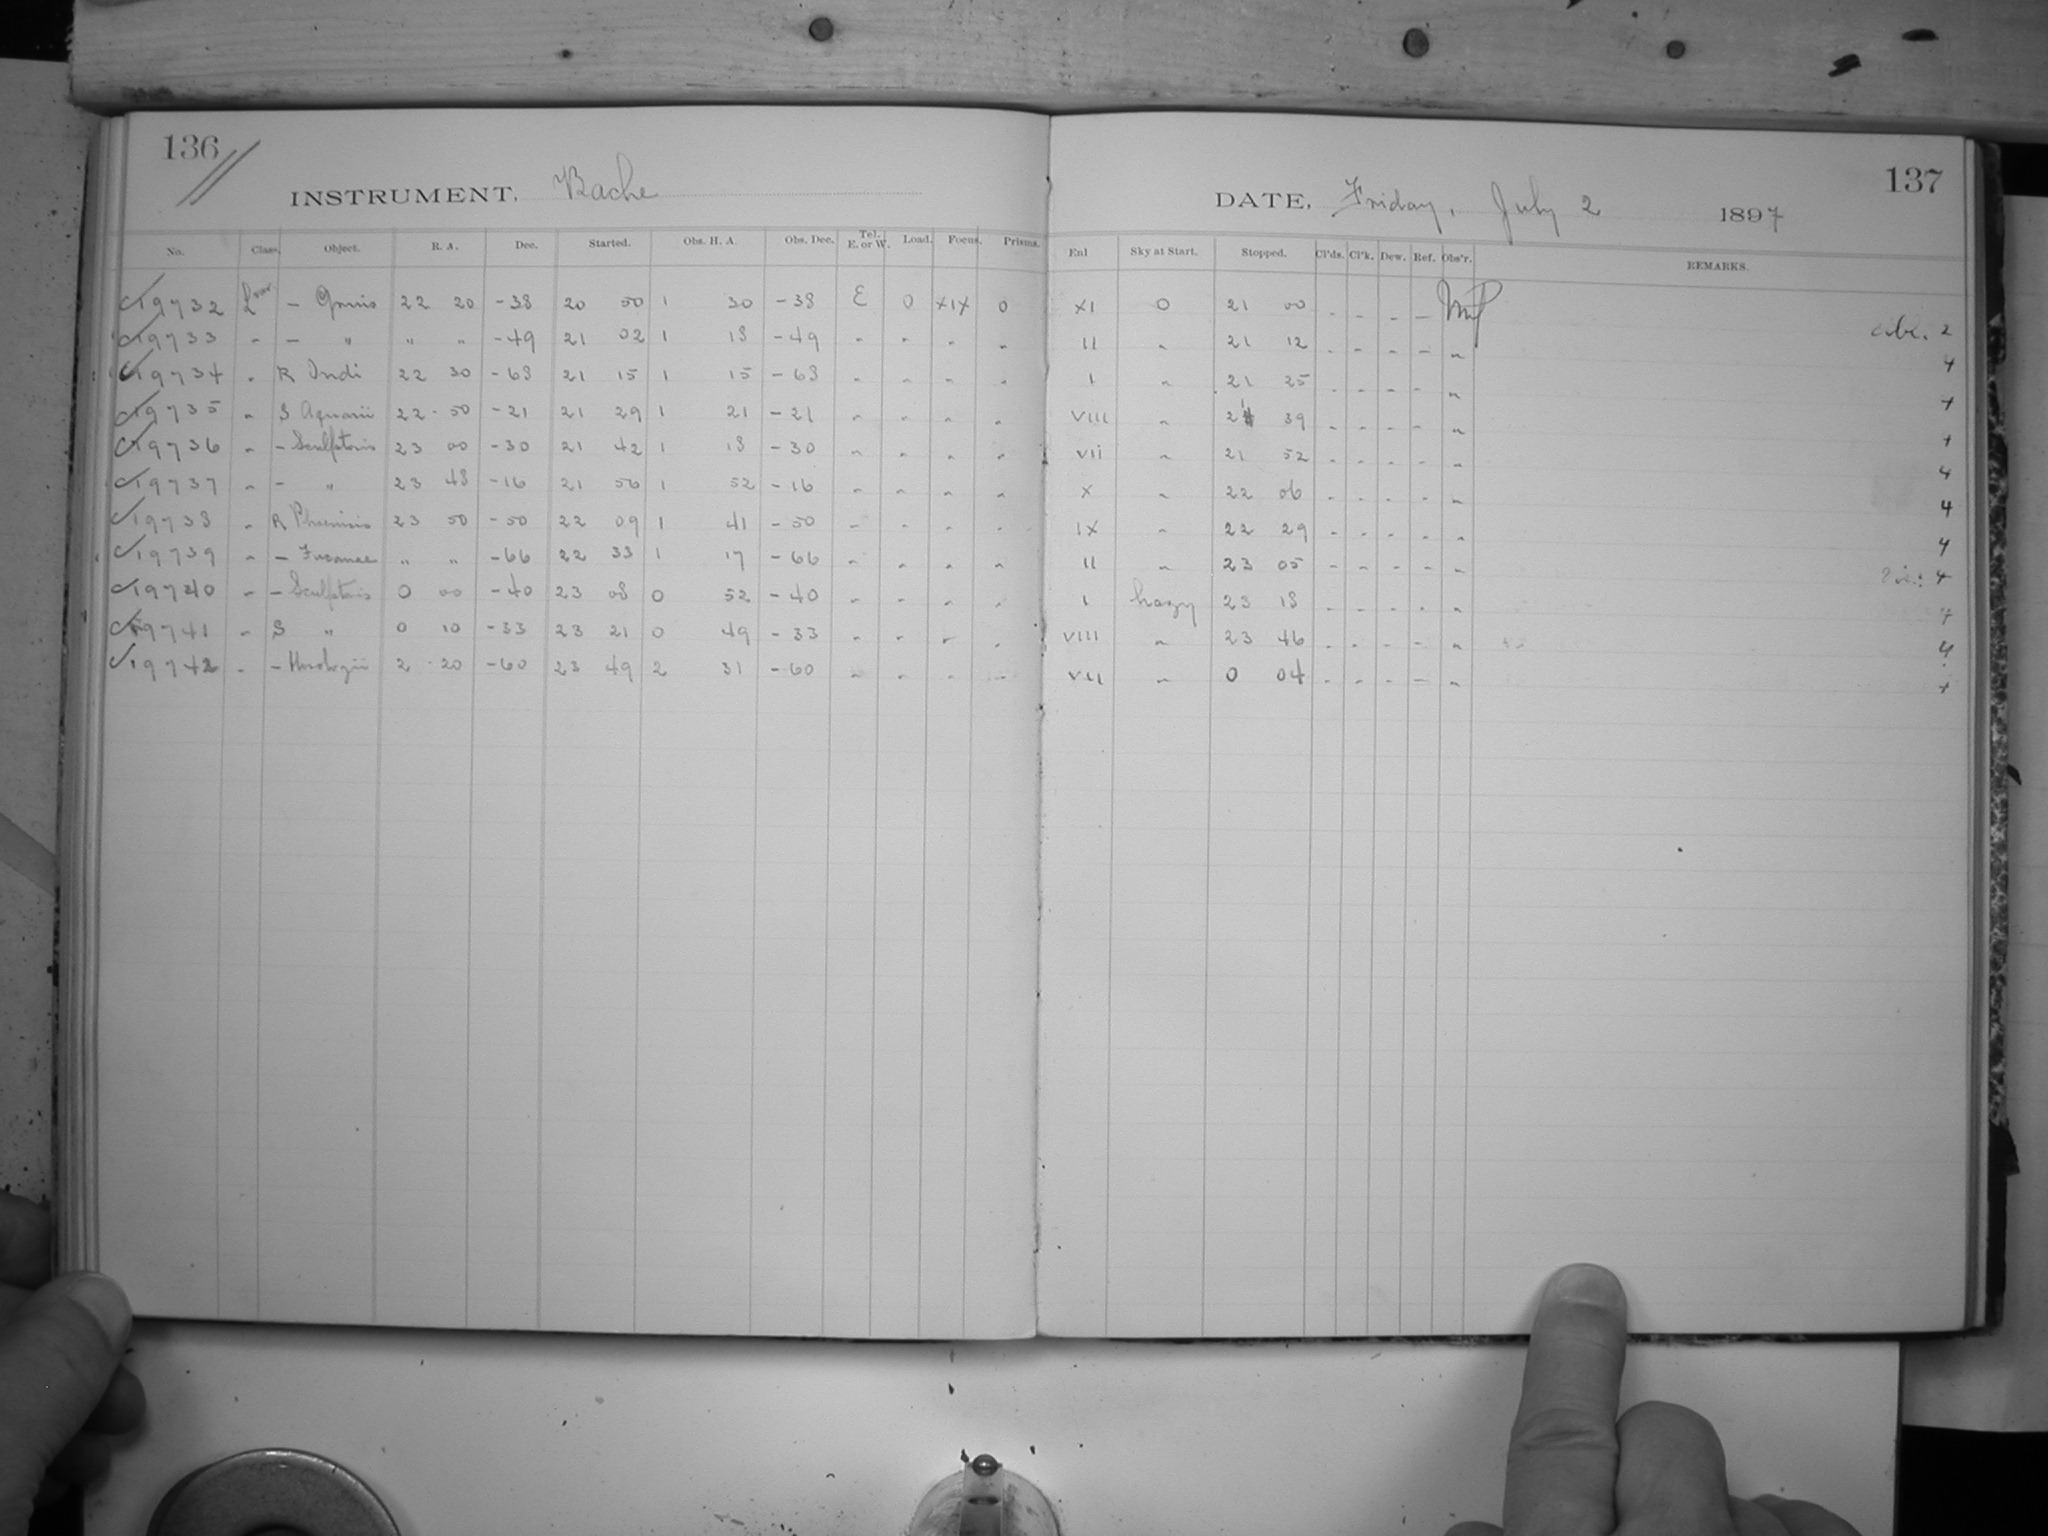 136
INSTRUMENT. Bache
No. Class. Object. R. A. Dec. Started. Obs. H. A. Obs. Dec. Tel. E. or W. Load. Focus. Prisms.
19732 L var. - Gruis 22 20 -38 20 50 1 30 -38 E 0 XIX 0
19733 " - " " " -49 21 02 1 18 -49 " " " "
19734 " R Indi 22 30 -68 21 15 1 15 -68 " " " "
19735 " S Aquarii 22 50 -21 21 29 1 21 -21 " " " "
19736 " - Sculptoris 23 00 -30 21 42 1 18 -30 " " " "
19737 " - " 23 48 -16 21 56 1 52 -16 " " " "
19738 " R Phoenicis 23 50 -50 22 09 1 41 -50 " " " "
19739 " - Tucanae " " -66 22 33 1 17 -66 " " " "
19740 " - Sculptoris 0 00 -40 23 08 0 52 -40 " " " "
19741 " S " 0 10 -33 23 21 0 49 -33 " " " "
19742 " - Horologii 2 20 -60 23 49 2 31 -60 " " " "
137
DATE. Friday, July 2 1897
Enl Sky at Start. Stopped. Cl'ds. Cl'k. Dew. Ref. Obs'r. REMARKS.
XI 0 21 00 - - - - 2
II " 21 12 - - - - " 4
I " 21 25 - - - - " +
VIII " 21 39 - - - - " +
VII " 21 52 - - - - " 4
X " 22 06 - - - - " 4
IX " 22 29 - - - - " 4
II " 23 05 - - - - " +
I hazy 23 18 - - - - "
VIII " 23 46 - - - - " 4
VII " 0 04 - - - - " +